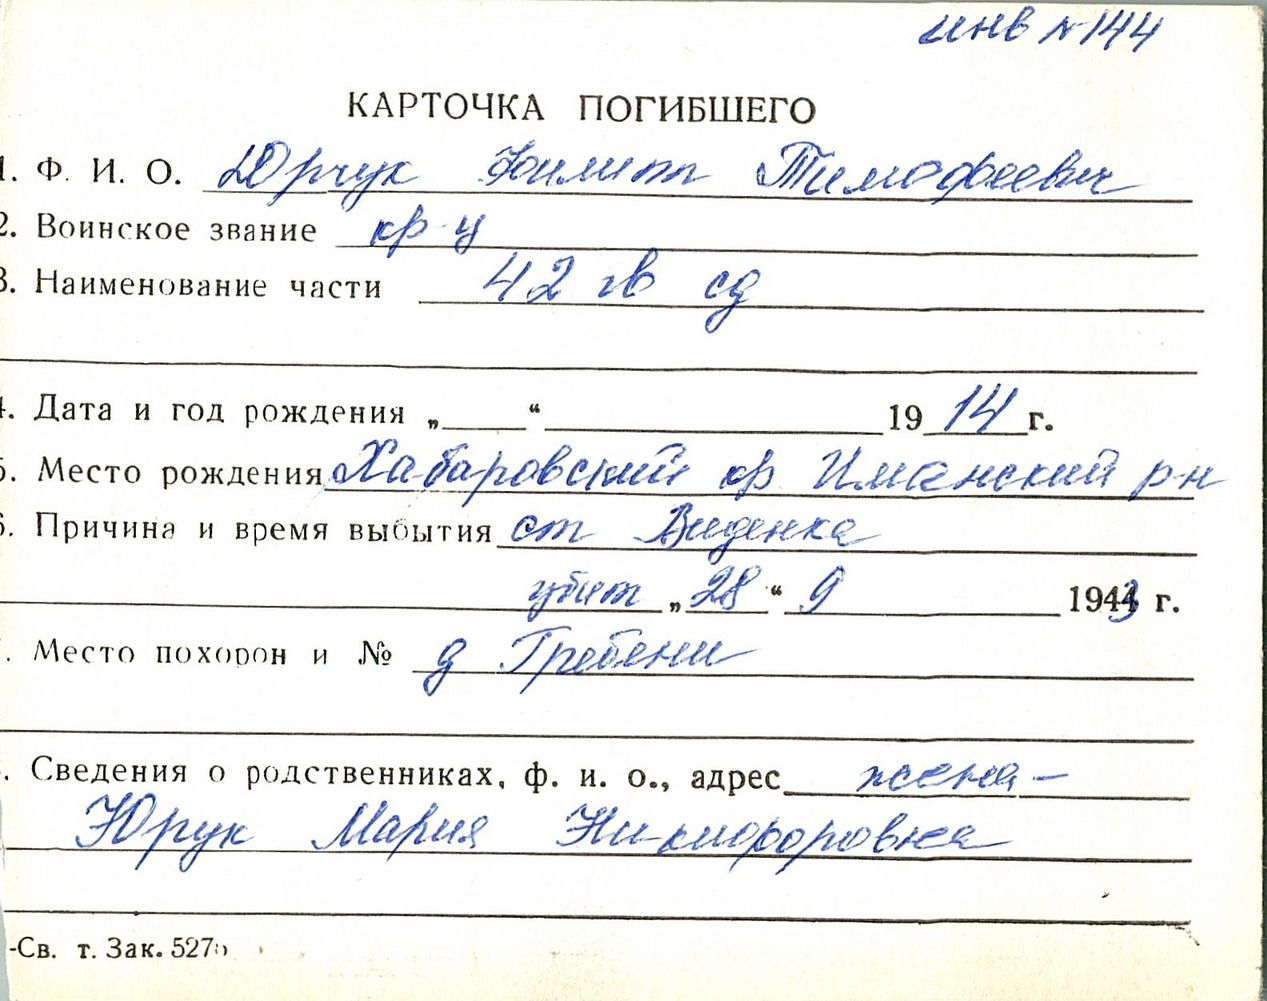 инв №144
КАРТОЧКА ПОГИБШЕГО
1. Ф. И. О. Юрчук Филипп Тимофеевич
2. Воинское звание кр-ц
3. Наименование части 42 гв сд
4. Дата и год рождения „ “ 1914 г.
5. Место рождения Хабаровский кр Иманский р-н
6. Причина и время выбытия ст Виденка
убит „28“ 9 1943 г.
. Место похорон и № д Гребени
. Сведения о родственниках, ф. и. о., адрес жена –
Юрук Мария Никифоровна
-Св. т. Зак. 527